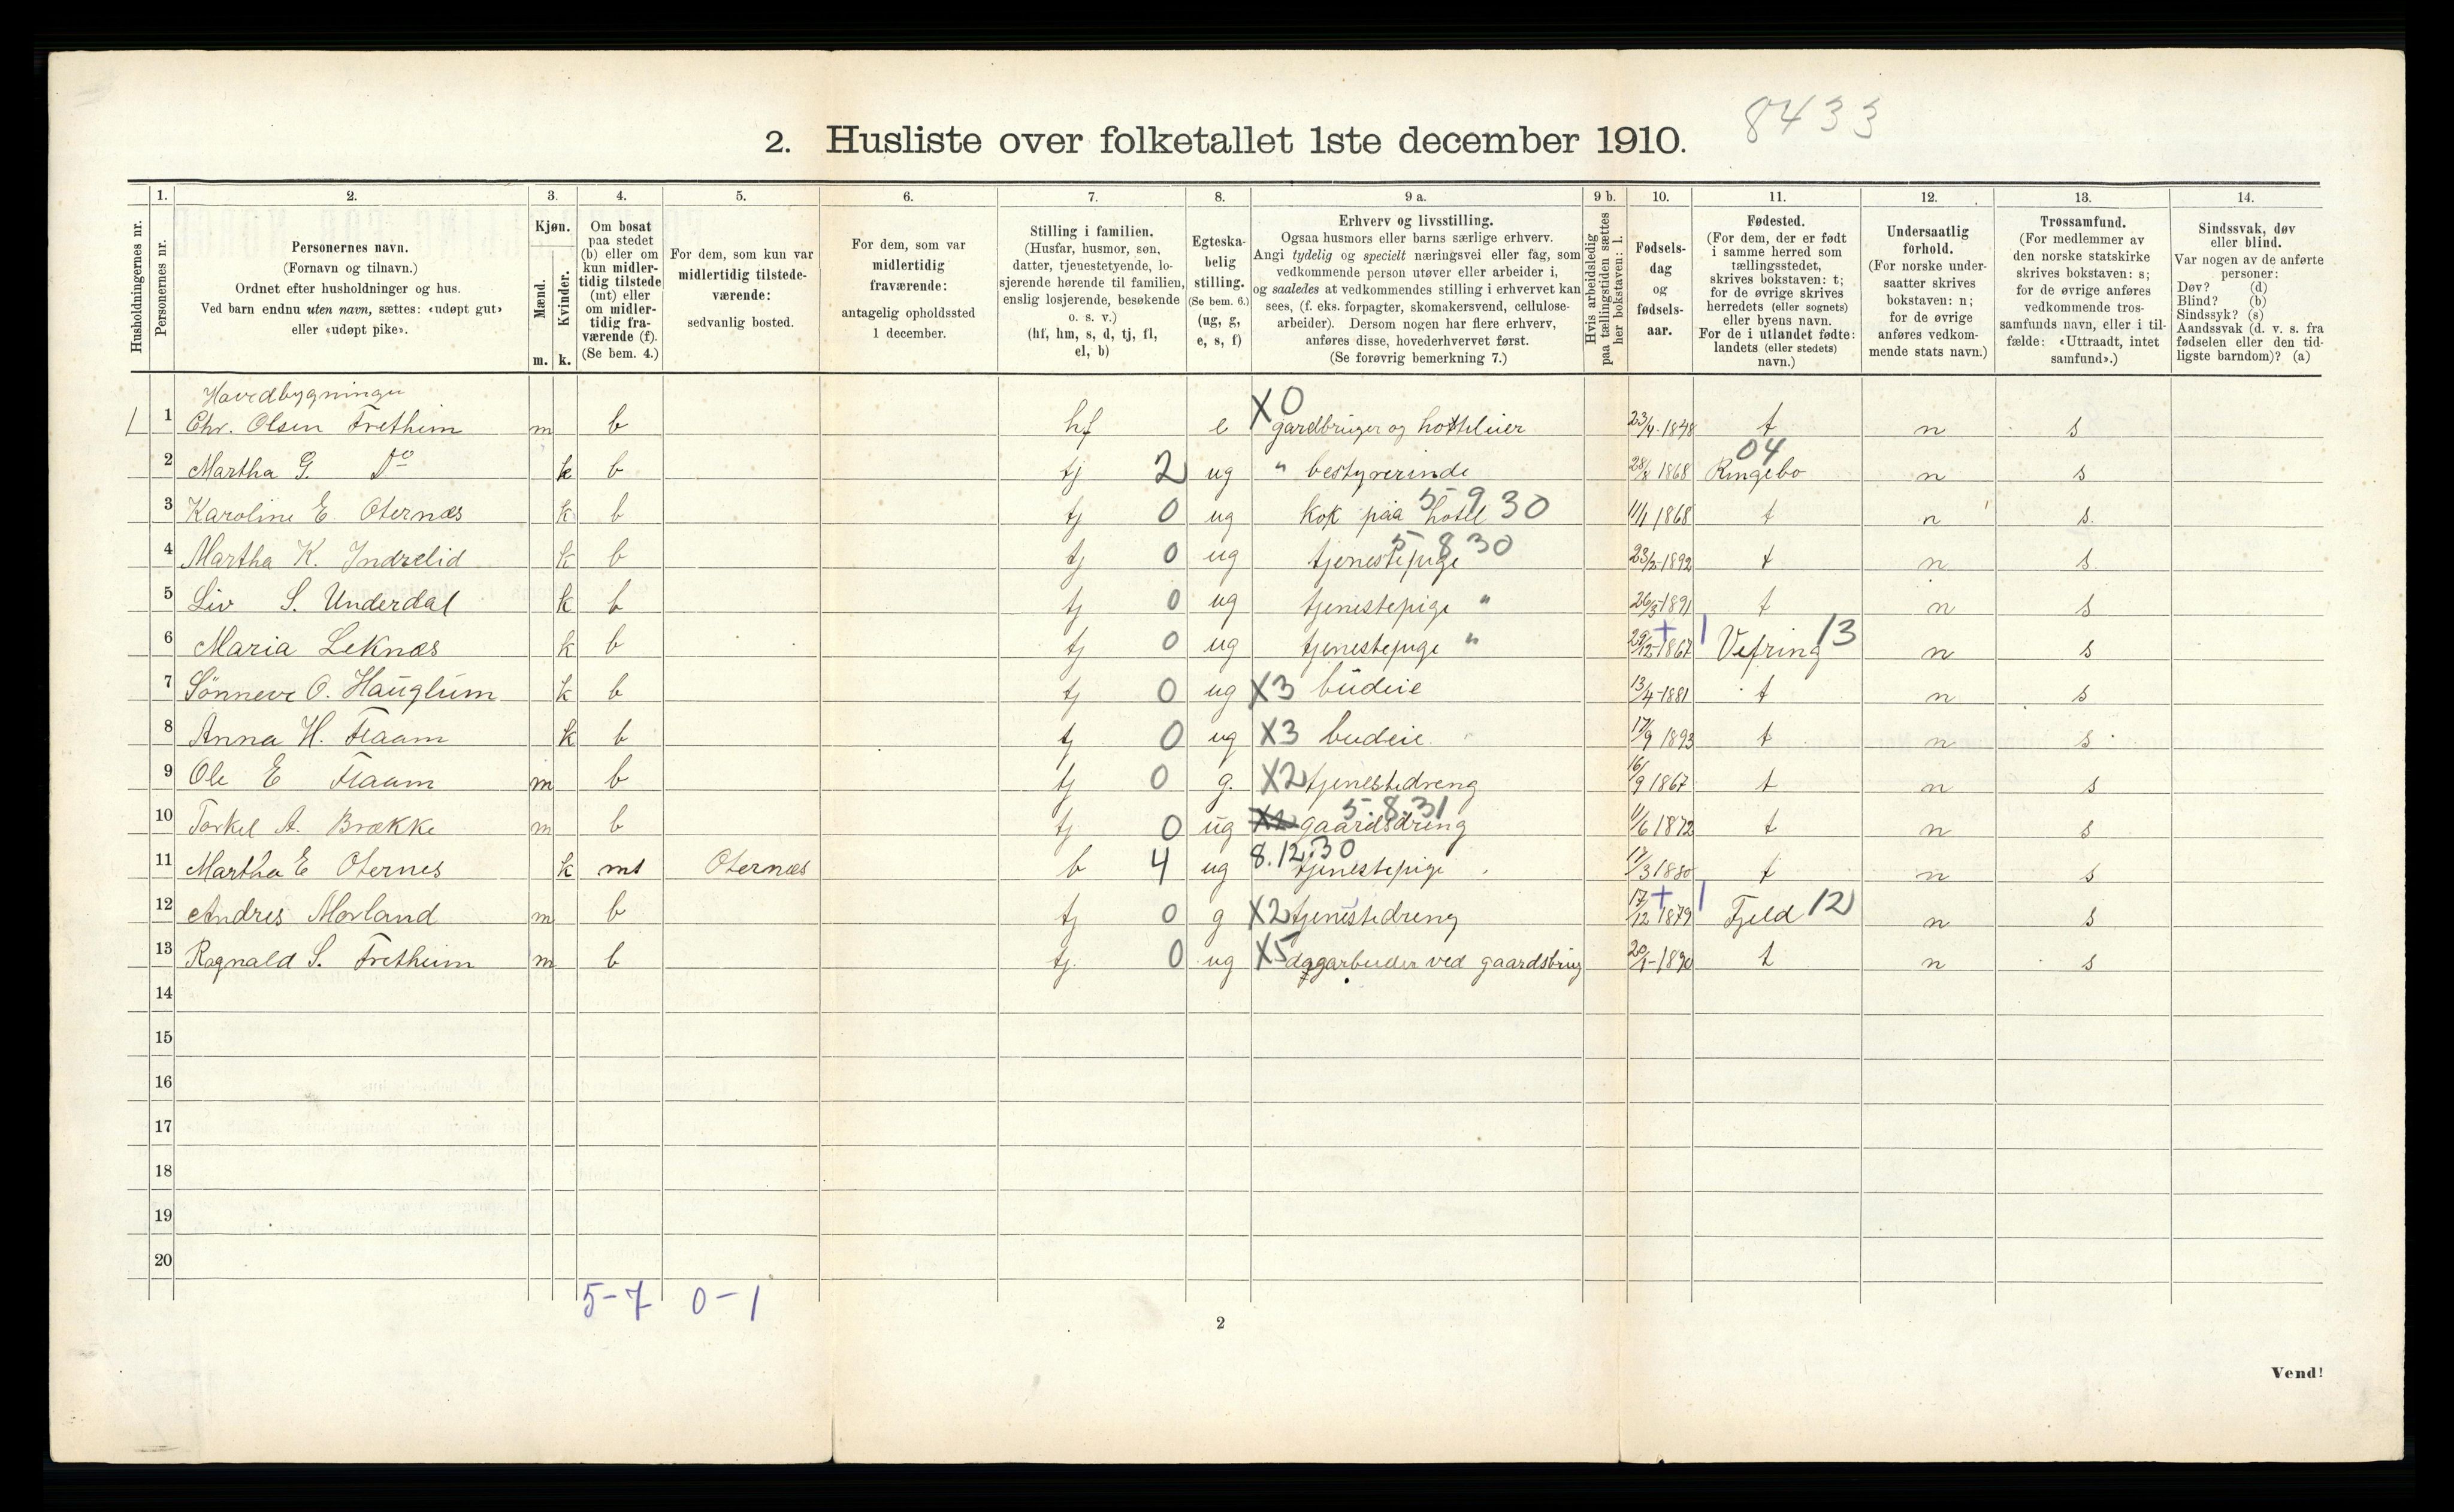 8433
2. Husliste over folketallet 1ste december 1910.
1. 2. 3. 4. 5. 6. 7. 8. 9 a. 9 b. 10. 11. 12. 13. 14.
Husholdningernes nr.
Personernes nr.
Personernes navn.
(Fornavn og tilnavn.)
Ordnet efter husholdninger og hus.
Ved barn endnu uten navn, sættes: «udøpt gut»
eller «udøpt pike».
Kjøn.
Mænd.
Kvinder.
m. k.
Om bosat
paa stedet
(b) eller om
kun midler-
tidig tilstede
(mt) eller
om midler-
tidig fra-
værende (f).
(Se bem. 4.)
For dem, som kun var
midlertidig tilstede-
værende:
sedvanlig bosted.
For dem, som var
midlertidig
fraværende:
antagelig opholdssted
1 december.
Stilling i familien.
(Husfar, husmor, søn,
datter, tjenestetyende, lo-
sjerende hørende til familien,
enslig losjerende, besøkende
o. s. v.)
(hf, hm, s, d, tj, fl,
el, b)
Egteska-
belig
stilling.
(Se bem. 6.)
(ug, g,
e, s, f)
Erhverv og livsstilling.
Ogsaa husmors eller barns særlige erhverv.
Angi tydelig og specielt næringsvei eller fag, som
vedkommende person utøver eller arbeider i,
og saaledes at vedkommendes stilling i erhvervet kan
sees, (f. eks. forpagter, skomakersvend, cellulose-
arbeider). Dersom nogen har flere erhverv,
anføres disse, hovederhvervet først.
(Se forøvrig bemerkning 7.)
Hvis arbeidsledig
paa tællingstiden sættes
her bokstaven: l.
Fødsels-
dag
og
fødsels-
aar.
Fødested.
(For dem, der er født
i samme herred som
tællingsstedet,
skrives bokstaven: t;
for de øvrige skrives
herredets (eller sognets)
eller byens navn.
For de i utlandet fødte:
landets (eller stedets)
navn.)
Undersaatlig
forhold.
(For norske under-
saatter skrives
bokstaven: n;
for de øvrige
anføres vedkom-
mende stats navn.)
Trossamfund.
(For medlemmer av
den norske statskirke
skrives bokstaven: s;
for de øvrige anføres
vedkommende tros-
samfunds navn, eller i til-
fælde: «Uttraadt, intet
samfund».)
Sindssvak, døv
eller blind.
Var nogen av de anførte
personer:
Døv? (d)
Blind? (b)
Sindssyk? (s)
Aandssvak (d. v. s. fra
fødselen eller den tid-
ligste barndom)? (a)
Hovedbygningen
1 1 Chr. Olsen Fretheim m b hf e X0 gardbruger og hotteleier 23/4-1848 t n s
2 Martha G. Do k b tj 2 ug " bestyrerinde 28/8 1868 Ringebo 04 n s
3 Karoline E Oternæs k b tj 0 ug kok paa hotel 5-9 30 11/1 1868 t n s.
4 Martha K. Indrelid k b tj 0 ug tjenestepige 5 8 30 23/2-1892 t n s.
5 Liv S. Underdal k b tj 0 ug tjenestepige " 26/3-1891 t n s
6 Maria Leknæs k b tj 0 ug tjenestepige " 29/12-1867 + 1 Vefring 13 n s
7 Sønneve O. Hauglum k b tj 0 ug X3 budeie 13/4-1881 t n s
8 Anna H. Flaam k b tj 0 ug X3 budeie 17/9 1893 t n s
9 Ole E Flaam m b tj 0 g. X2 tjenestedreng 16/9 1867 t n s
10 Torkel A. Brække m b tj 0 ug X2 gaardsdreng 5-8.31 11/6 1872 t n s
11 Martha E Oternes k mt Oternæs b 4 ug 8.12.30 tjenestepige 17/3 1880 t n s
12 Andres Morland m b tj 0 g X2 tjenestedreng 17/12 1879 + 1 Fjeld 12 n s
13 Ragnald S. Fretheim m b tj. 0 ug X5 dagarbeider ved gaardsbrug 20/1-1890 t n s
14
15
16
17
18
19
20
5-7 0-1
2
Vend!